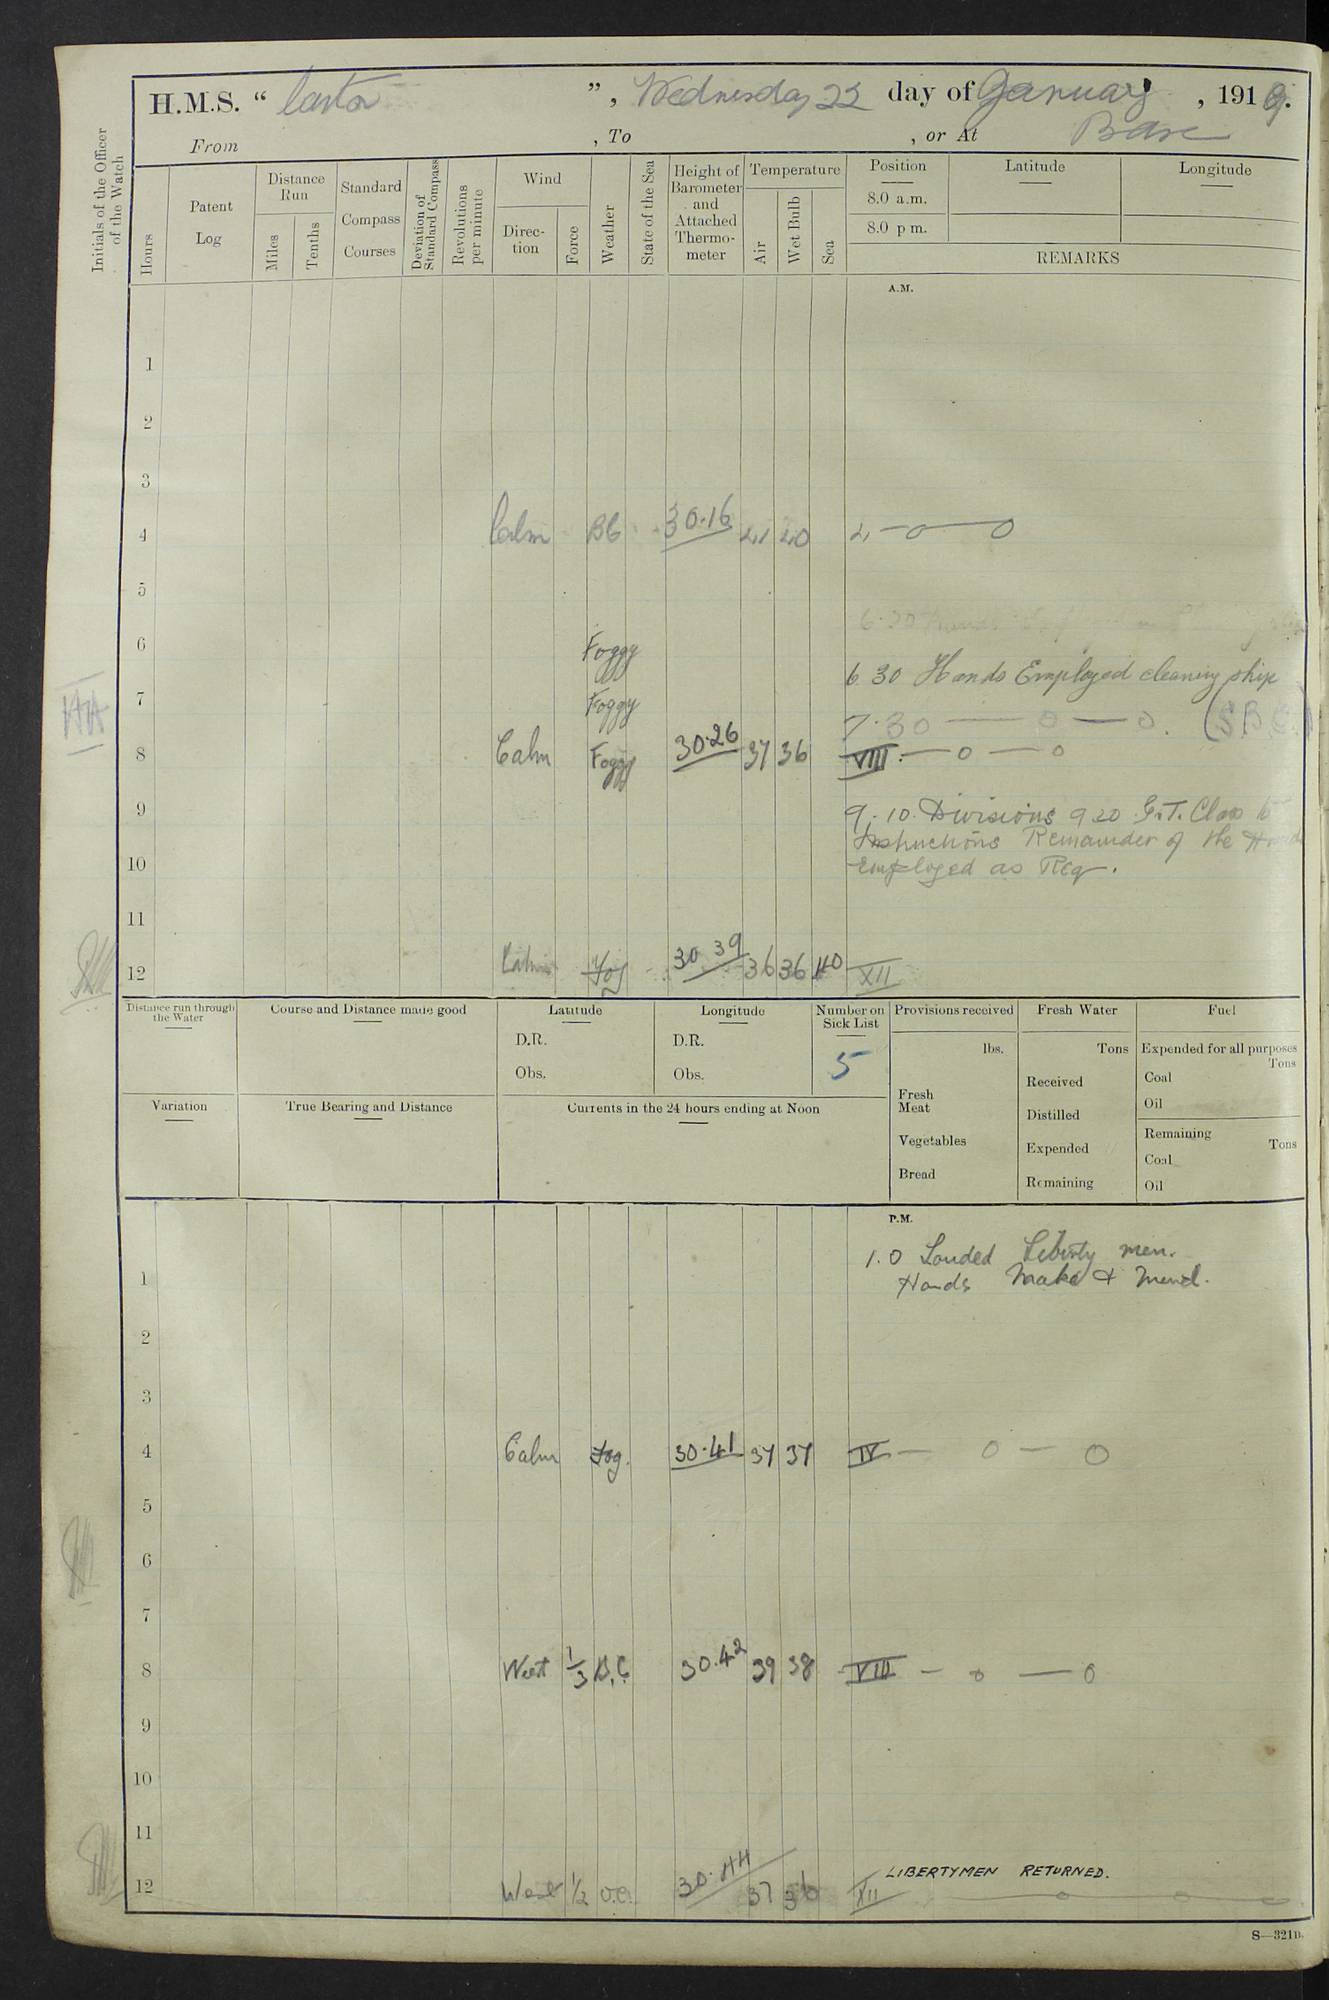 H.M.S. " Castor ", Wednesday 22 day of January, 1919.
From , To , or At Base
Initials of the Officer of the Watch
Hours
Patent Log
Distance Run
Miles
Tenths
Standard Compass Courses
Deviation of Standard Compass
Revolutions per minute
Wind
Direction
Force
Weather
State of the Sea
Height of Barometer and Attached Thermometer
Temperature
Air
Wet Bulb
Sea
Position
8.0 a.m.
8.0 p m.
Latitude
Longitude
REMARKS
A.M.
1
2
3
4 Calm BC 30.16 41 40 4 — o — o
5
6 Foggy
6 30 Hands Employed cleaning ship
7 Foggy
7.30 — o — o. (S.B.C.)
8 Calm Foggy 30.26 37 36 VIII. — o — o
9
9.10 Divisions 9 20 G.T. Class to
Instructions Remainder of the Hands
10 Employed as Req.
11
12 Calm Fog 30 39 36 36 40 XII
Distance run through the Water
Course and Distance made good
Latitude
D.R.
Obs.
Longitude
D.R.
Obs.
Number on Sick List
5
Provisions received
lbs.
Fresh Meat
Vegetables
Bread
Fresh Water
Tons
Received
Distilled
Expended
Remaining
Fuel
Expended for all purposes
Tons
Coal
Oil
Remaining
Tons
Coal
Oil
Variation
True Bearing and Distance
Currents in the 24 hours ending at Noon
P.M.
1.0 Landed Liberty men.
1 Hands Make & Mend.
2
3
4 Calm Fog. 30.41 37 37 IV — o — o
5
6
7
8 West 1/3 B.C. 30.42 39 38 VIII — o — o
9
10
11
LIBERTYMEN RETURNED.
12 West 1/2 o.c. 30.44 37 36 XII o o o
S—321B.